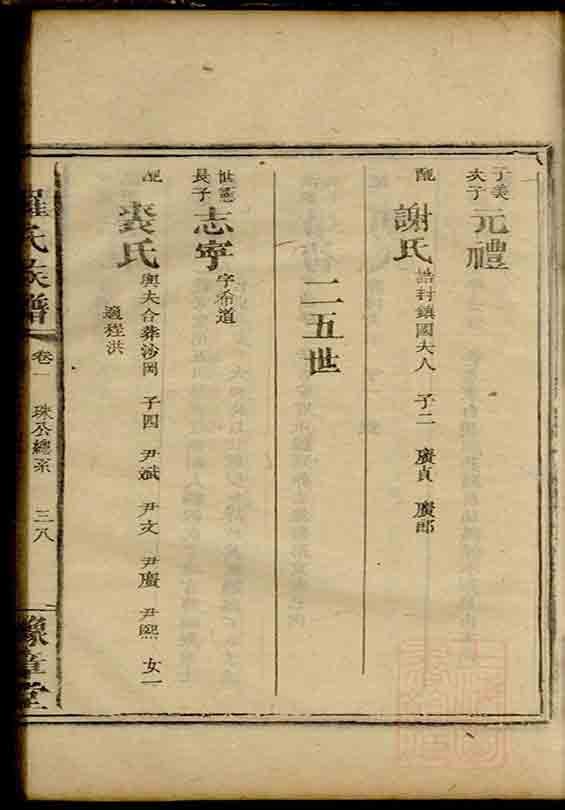 子美
次子 元禮
配 謝氏 誥封鎮國夫人 子二 廣貞 廣郎
二五世
世憲
長子 志寧 字希道
配 袁氏 與夫合葬沙岡 子四 尹斌 尹文 尹廣 尹熙 女一
適程洪
羅氏族譜 卷一 珠公總系 三八 豫章堂